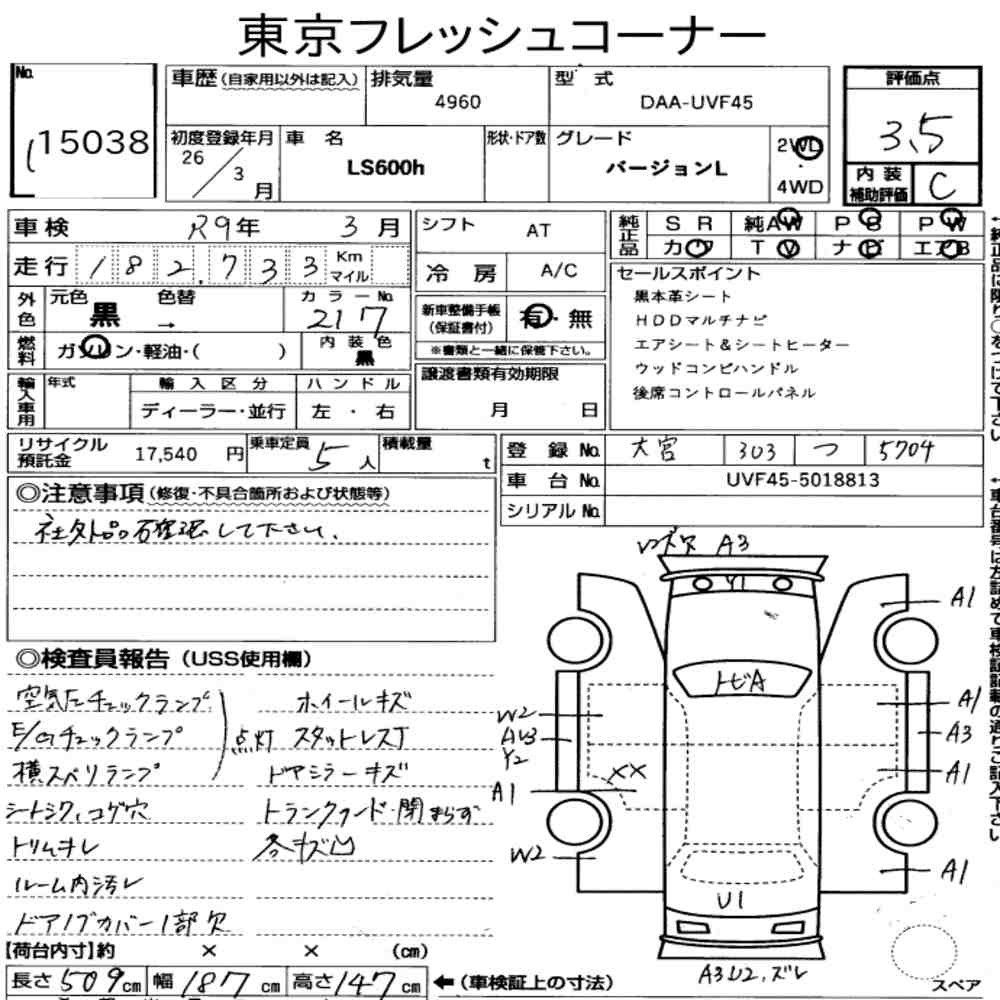 東京フレッシュコーナー
No.
15038
車歴(自家用以外は記入)
排気量
4960
型式
DAA-UVF45
評価点
3.5
初度登録年月
26/3月
車名
LS600h
形状・ドア数
グレード
バージョンL
2WD
・
4WD
内装
補助評価
C
車検 R9年 3月
走行 182,733 Km
マイル
シフト
AT
冷房
A/C
純正品
SR 純AW PS PW
カワ TV ナビ エアB
セールスポイント
黒本革シート
HDDマルチナビ
エアシート&シートヒーター
ウッドコンビハンドル
後席コントロールパネル
外色
元色
黒
色替
→
カラーNo.
217
燃料
ガソリン・軽油・( )
内装色
黒
新車整備手帳
(保証書付)
有・無
※書類と一緒に保管下さい。
輸入車用
年式
輸入区分
ディーラー・並行
ハンドル
左・右
譲渡書類有効期限
月 日
リサイクル
預託金
17,540 円
乗車定員
5人
積載量
t
登録No. 大宮 303 つ 5704
車台No. UVF45-5018813
シリアルNo.
◎注意事項(修復・不具合箇所および状態等)
社外品確認して下さい.
◎検査員報告(USS使用欄)
空気圧チェックランプ
E/Gチェックランプ
横スベリランプ
点灯
シートシワ,コゲ穴
トリムキレ
ルーム内汚レ
ドアノブカバー1部欠
ホイールキズ
スタットレスT
ドアミラーキズ
トランクフード閉まらず
各キズ凹
A3
Y1
トビA
A1
A1
A3
A1
A1
W2
Y2
XX
A1
W2
U1
A3U2,ズレ
スペア
【荷台内寸】約 × × (cm)
長さ509cm 幅187cm 高さ147cm ←(車検証上の寸法)